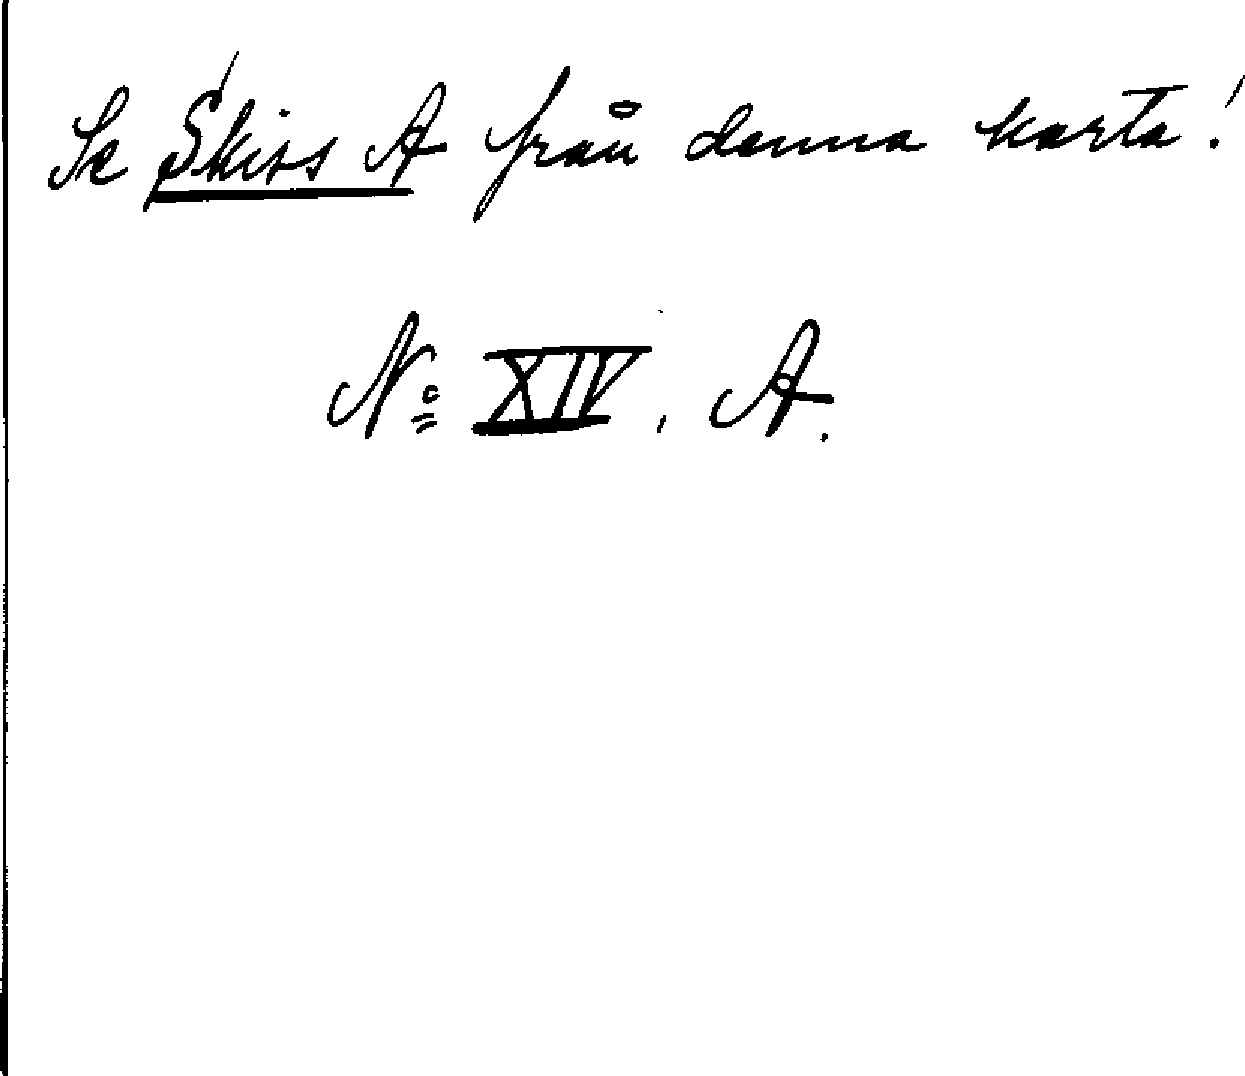 Se Skiss A från denna karta!
No XIV, A.